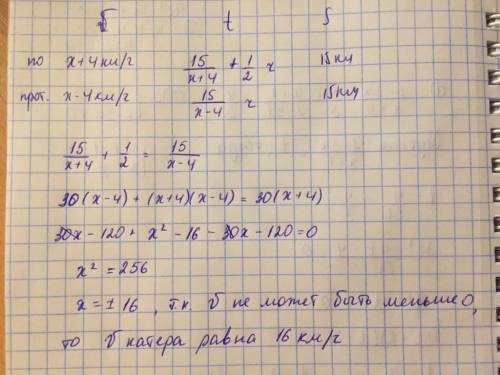 υ t S
по x+4 км/г 15/(x+4) + 1/2 ч 15 км
прот. x-4 км/г 15/(x-4) ч 15 км
15/(x+4) + 1/2 = 15/(x-4)
30(x-4) + (x+4)(x-4) = 30(x+4)
30x - 120 + x² - 16 - 30x - 120 = 0
x² = 256
x = ± 16 , т.к. υ не может быть меньше 0,
то υ катера равна 16 км/г